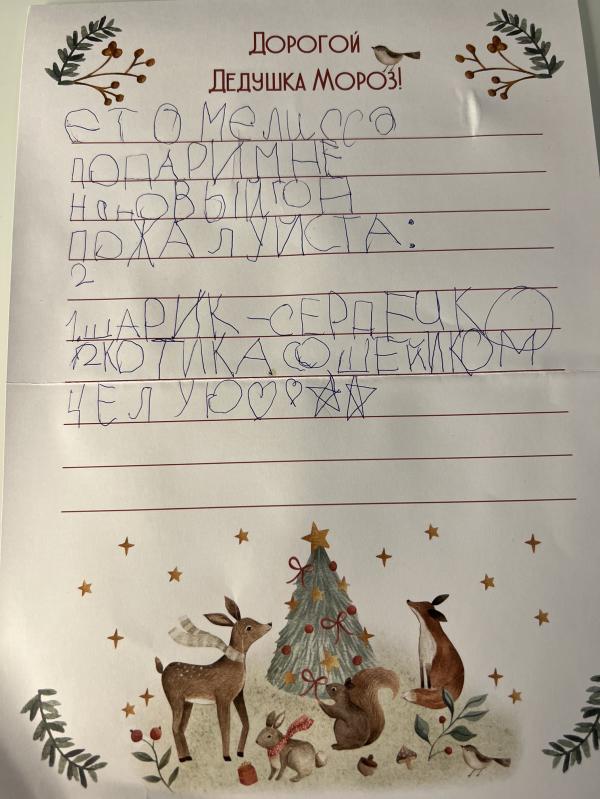 Дорогой
Дедушка Мороз!
ЕТО Мелисса
ПОПАРИ МНЕ
НаНОВЫЙ ГОН
ПОЖАЛУЙСТА:
2
1.ШАРИК-СЕРДЕЧКО
2КОТИКА СОШЕЙИКОМ
ЦЕЛУЮ